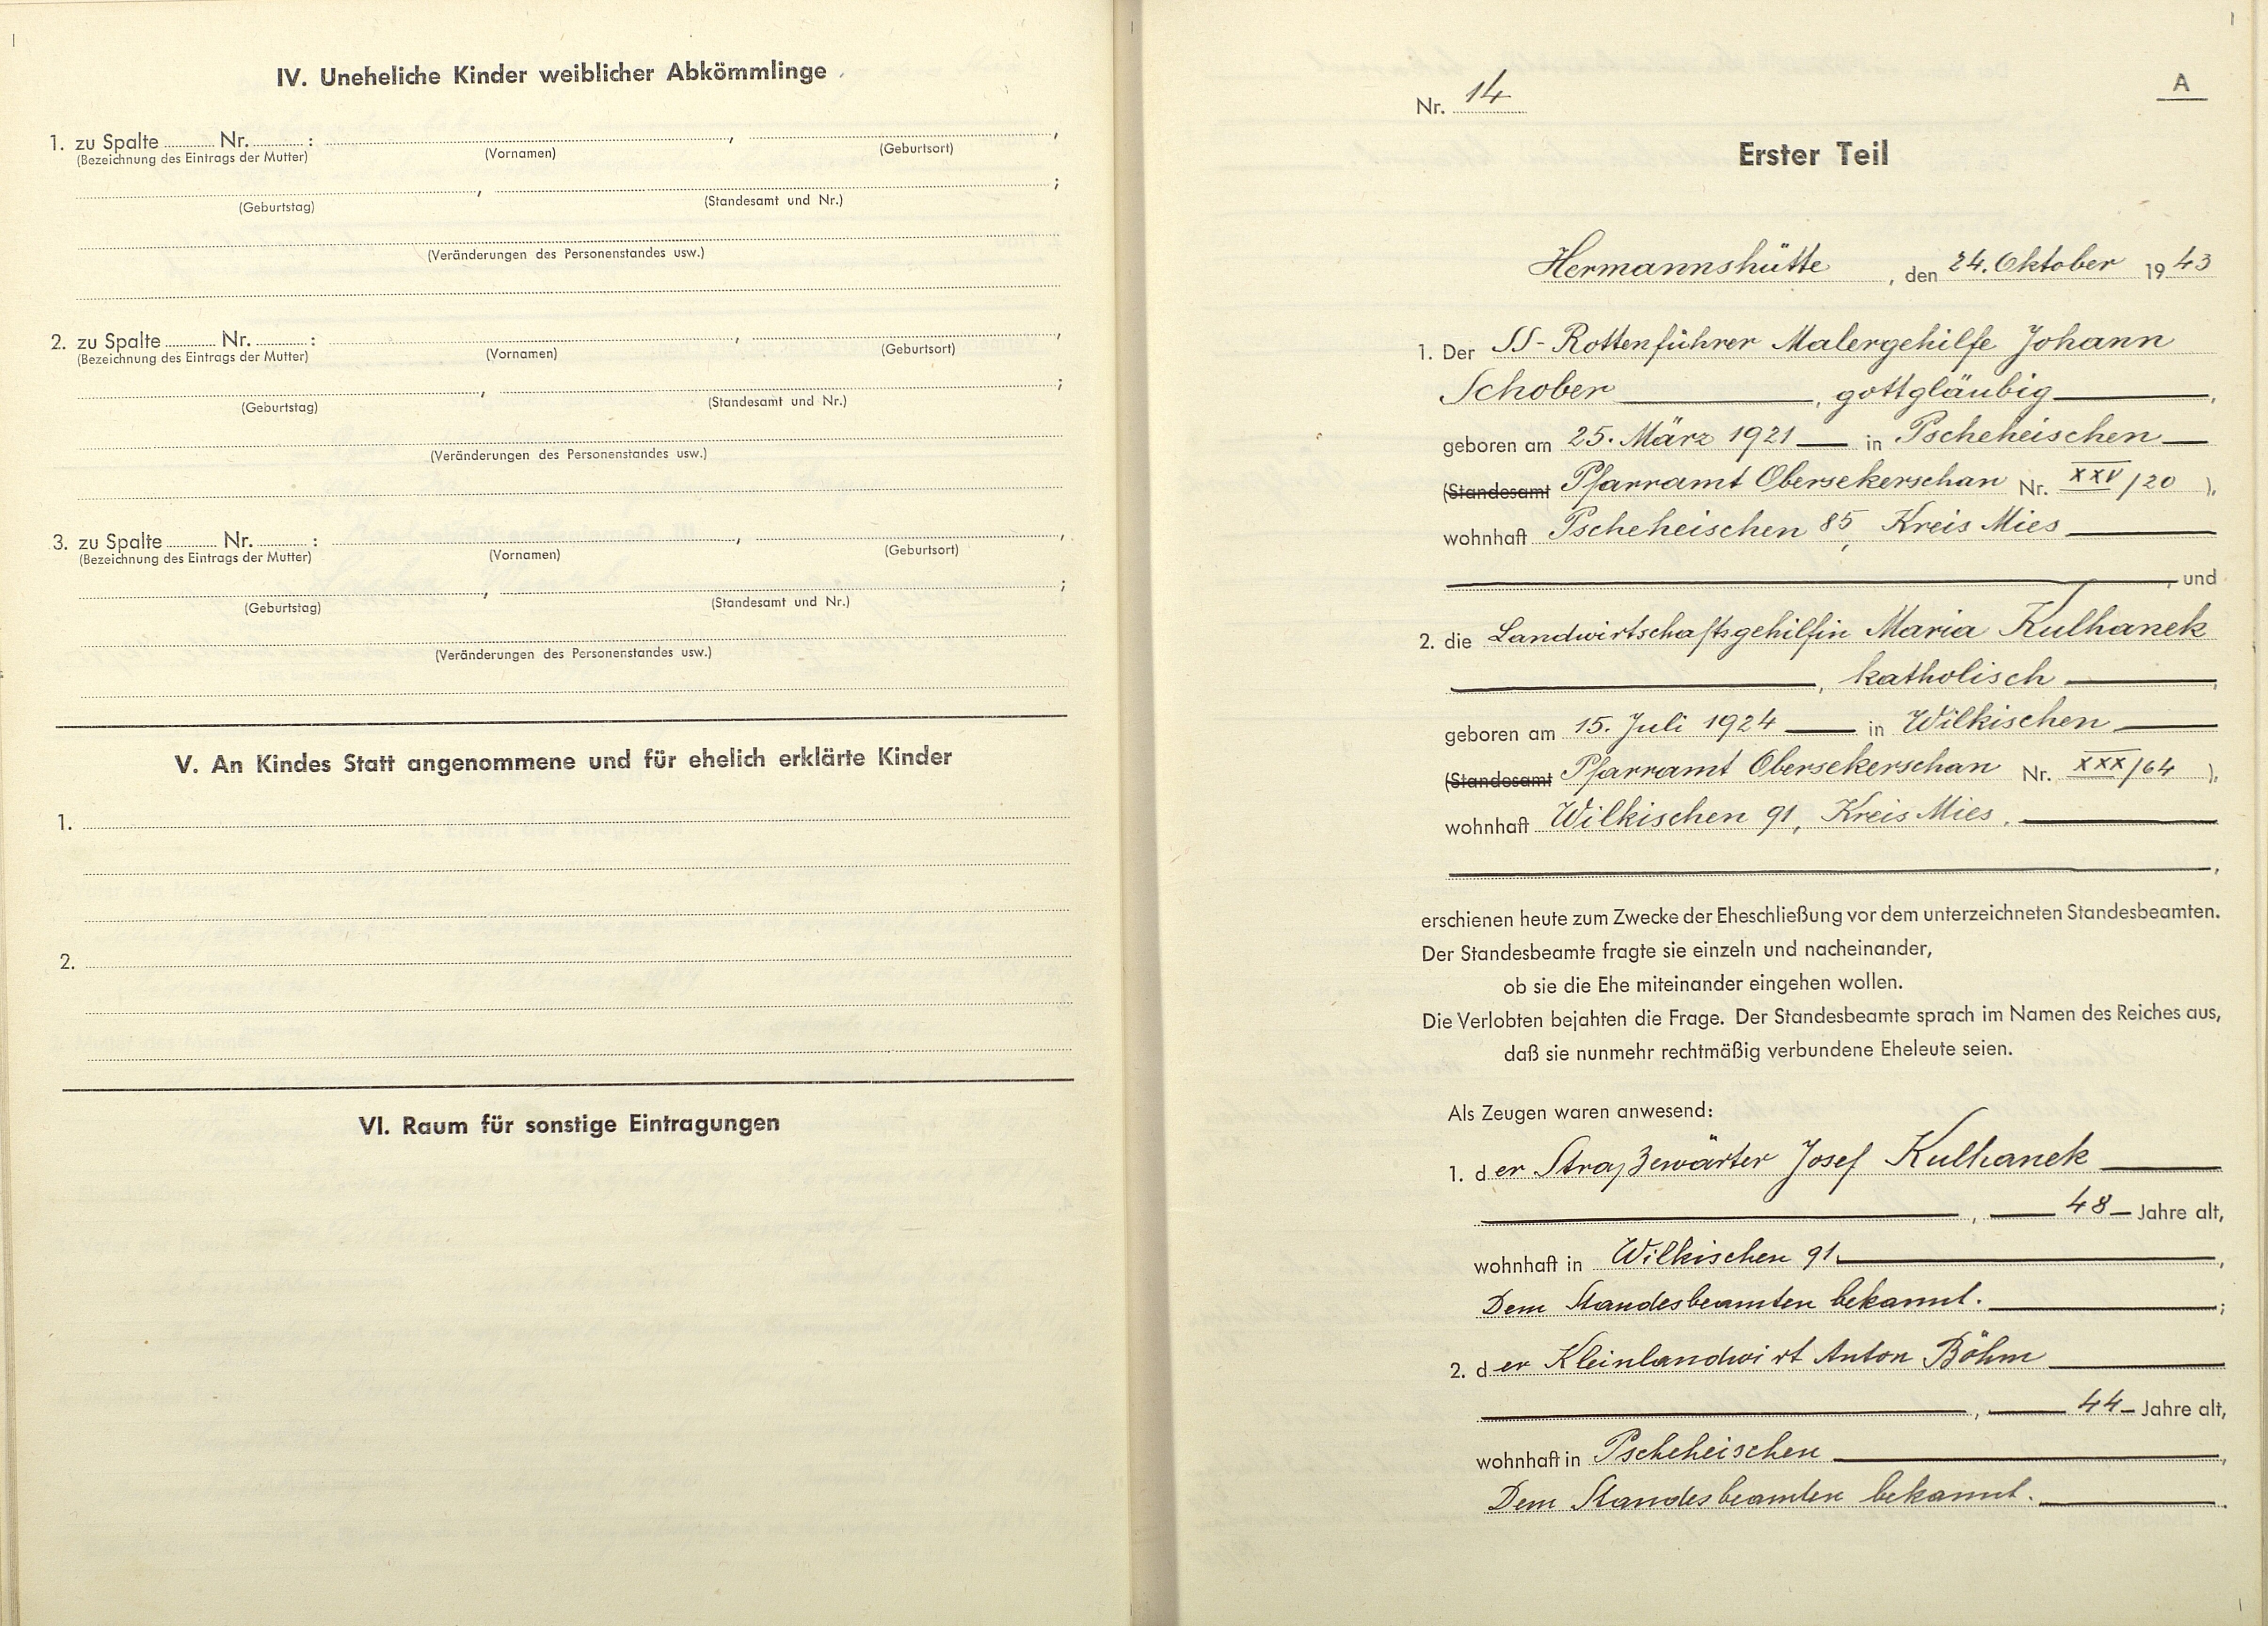 IV. Uneheliche Kinder weiblicher Abkömmlinge
1. zu Spalte ........ Nr. ........ : ........ , ........ ,
(Bezeichnung des Eintrags der Mutter) (Vornamen) (Geburtsort)
........ , ........ ;
(Geburtstag) (Standesamt und Nr.)
(Veränderungen des Personenstandes usw.)
2. zu Spalte ........ Nr. ........ : ........ , ........ ,
(Bezeichnung des Eintrags der Mutter) (Vornamen) (Geburtsort)
........ , ........ ;
(Geburtstag) (Standesamt und Nr.)
(Veränderungen des Personenstandes usw.)
3. zu Spalte ........ Nr. ........ : ........ , ........ ,
(Bezeichnung des Eintrags der Mutter) (Vornamen) (Geburtsort)
........ , ........ ;
(Geburtstag) (Standesamt und Nr.)
(Veränderungen des Personenstandes usw.)
V. An Kindes Statt angenommene und für ehelich erklärte Kinder
1.
2.
VI. Raum für sonstige Eintragungen
A
Nr. 14
Erster Teil
Hermannshütte, den 24. Oktober 1943
1. Der SS-Rottenführer Malergehilfe Johann
Schober, gottgläubig,
geboren am 25. März 1921 in Pscheheischen
(Standesamt Pfarramt Obersekerschan Nr. XXV/20),
wohnhaft Pscheheischen 85, Kreis Mies
, und
2. die Landwirtschaftsgehilfin Maria Kulhanek
, katholisch,
geboren am 15. Juli 1924 in Wilkischen
(Standesamt Pfarramt Obersekerschan Nr. XXX/64),
wohnhaft Wilkischen 91, Kreis Mies.
,
erschienen heute zum Zwecke der Eheschließung vor dem unterzeichneten Standesbeamten.
Der Standesbeamte fragte sie einzeln und nacheinander,
ob sie die Ehe miteinander eingehen wollen.
Die Verlobten bejahten die Frage. Der Standesbeamte sprach im Namen des Reiches aus,
daß sie nunmehr rechtmäßig verbundene Eheleute seien.
Als Zeugen waren anwesend:
1. der Straßewärter Josef Kulhanek
, 48 Jahre alt,
wohnhaft in Wilkischen 91,
Dem Standesbeamten bekannt. ;
2. der Kleinlandwirt Anton Böhm
, 44 Jahre alt,
wohnhaft in Pscheheischen,
Dem Standesbeamten bekannt. .